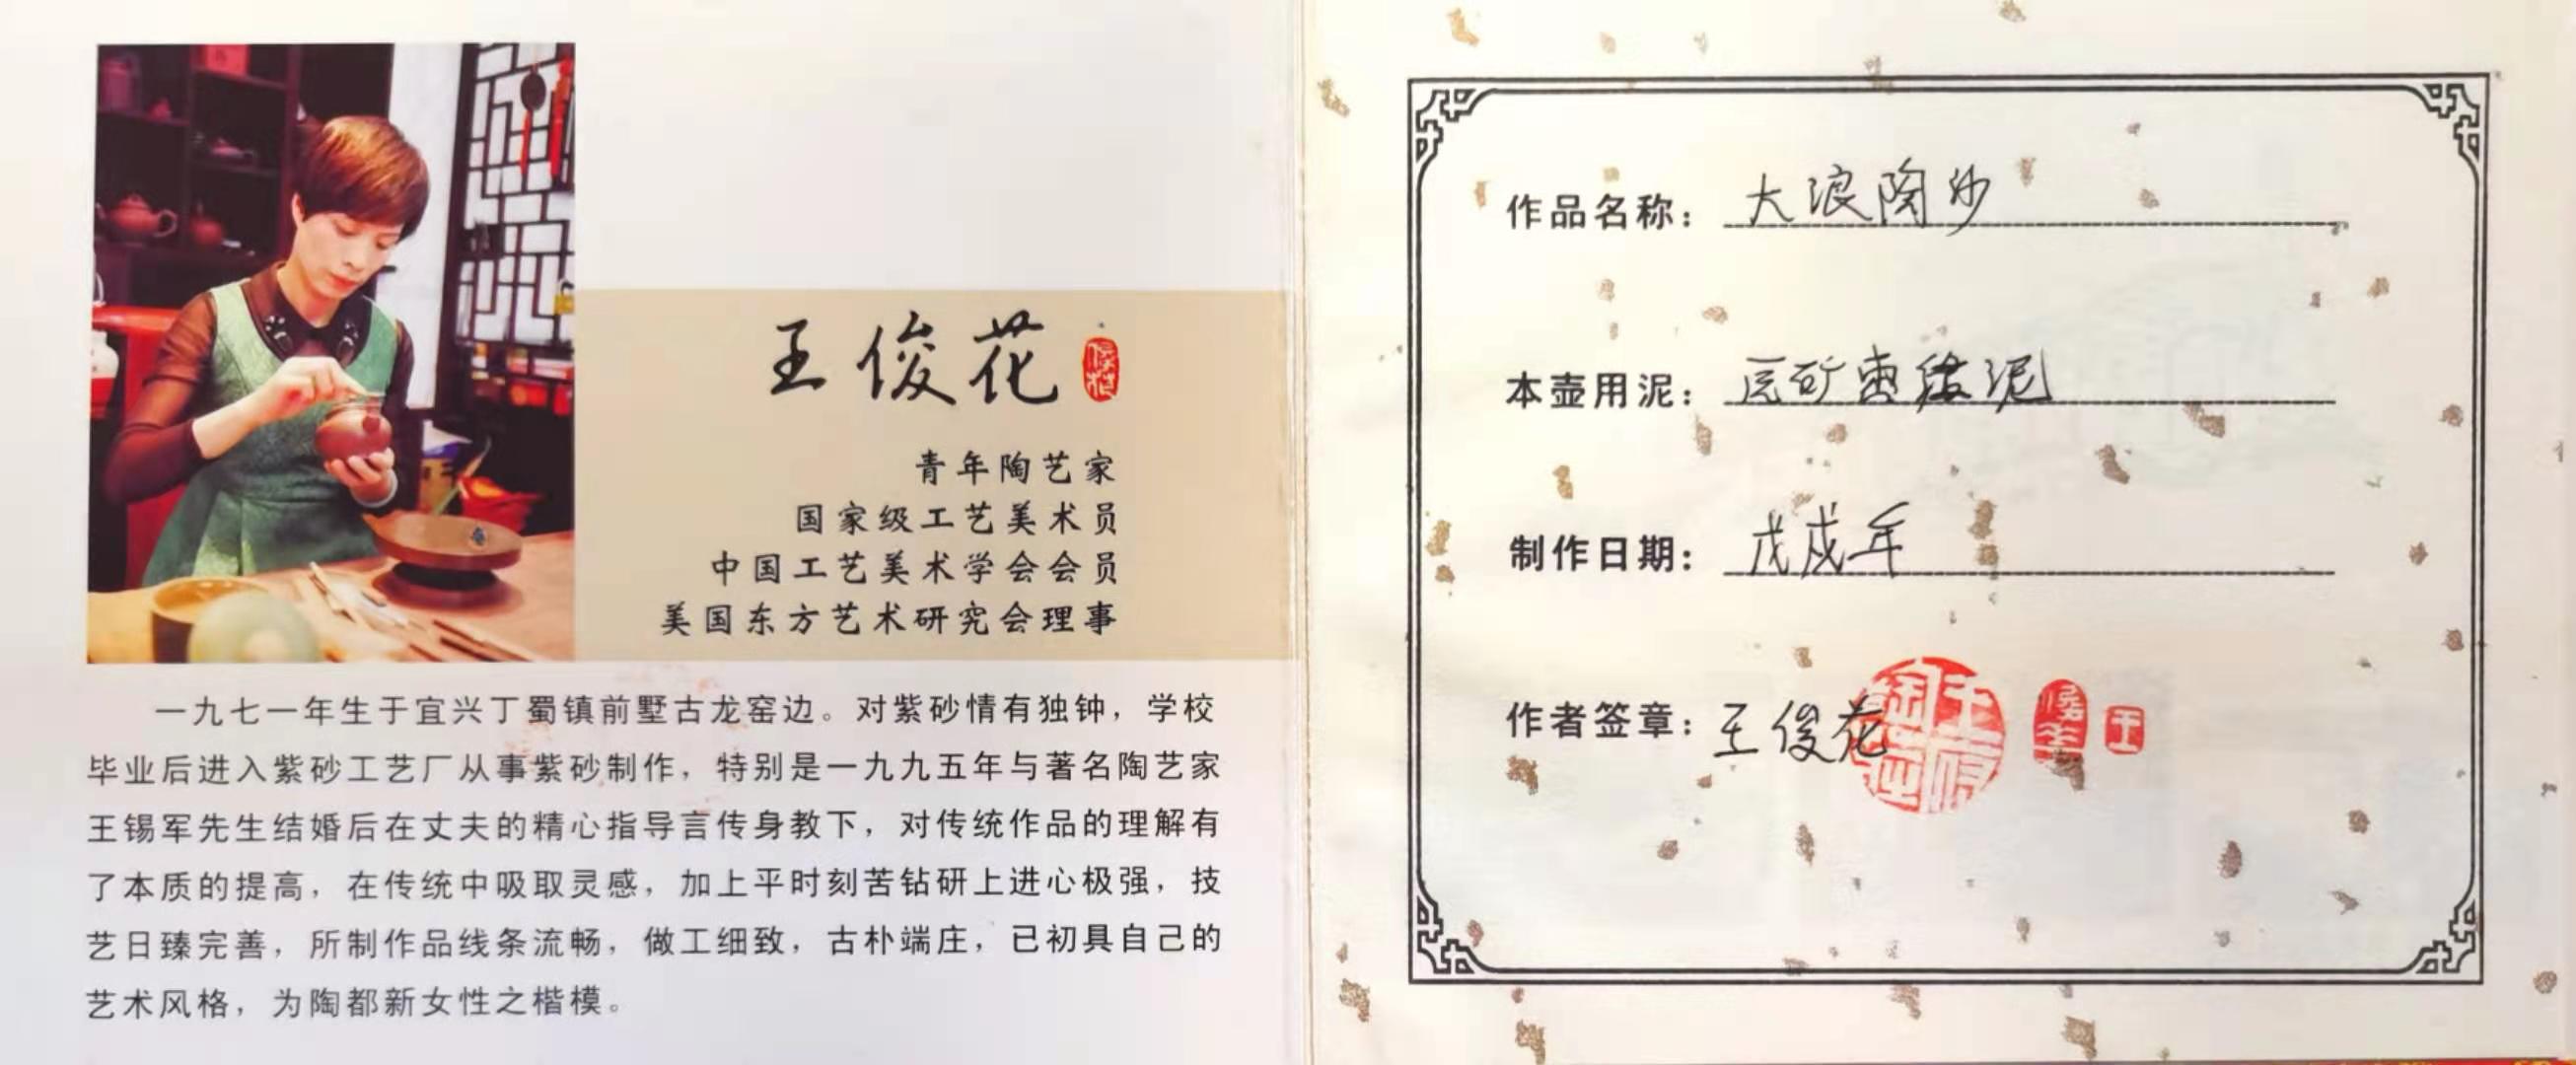 王俊花
青年陶艺家
国家级工艺美术员
中国工艺美术学会会员
美国东方艺术研究会理事
一九七一年生于宜兴丁蜀镇前墅古龙窑边。对紫砂情有独钟，学校
毕业后进入紫砂工艺厂从事紫砂制作，特别是一九九五年与著名陶艺家
王锡军先生结婚后在丈夫的精心指导言传身教下，对传统作品的理解有
了本质的提高，在传统中吸取灵感，加上平时刻苦钻研上进心极强，技
艺日臻完善，所制作品线条流畅，做工细致，古朴端庄，已初具自己的
艺术风格，为陶都新女性之楷模。
作品名称：大浪陶沙
本壶用泥：矿枣泥
制作日期：戊戌年
作者签章：王俊花
王